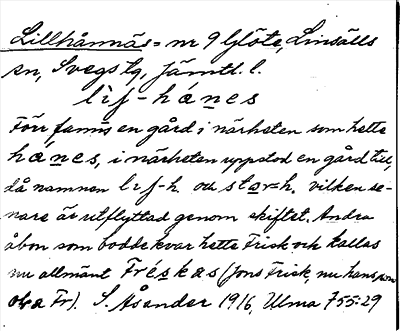 Lillhånnäs = nr 9 Glöte, Linsälls
sn, Svegs tg, Jämtl. l.
lìʃ-hánes
Förr fanns en gård i närheten som hette
hánes, i närheten uppstod en gård till,
då namnen liʃ-h. och stor=h. vilken se-
nare är utflyttad genom skiftet. Andra
åbon som bodde kvar hette Frisk och kallas
nu allmänt Fréskas (Jons Frisk, nu hans son
Ola Fr). S. Åsander 1916, Ulma 755:29